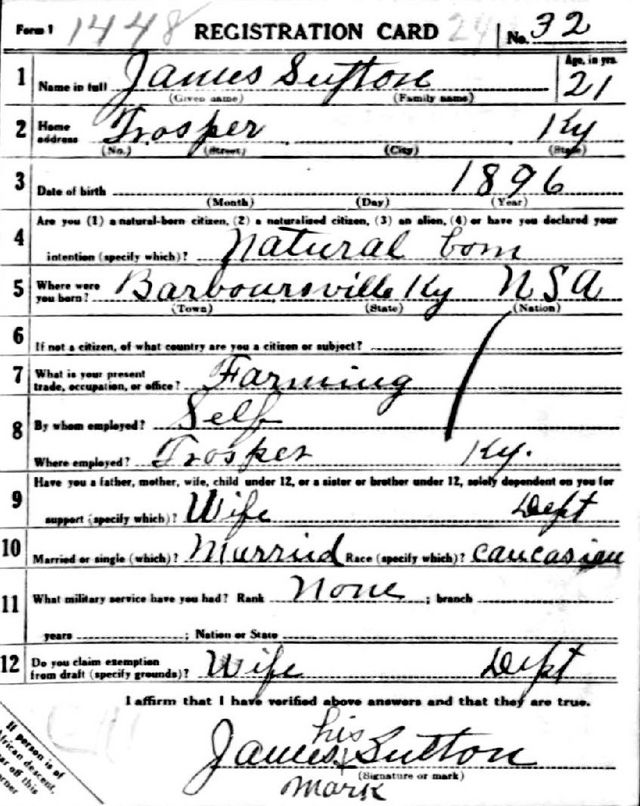 Form 1 1448 REGISTRATION CARD 24 No. 32
1 Name in full James Sutton Age, in yrs. 21
(Given name) (Family name)
2 Home address Trosper Ky
(No.) (Street) (City) (State)
3 Date of birth 1896
(Month) (Day) (Year)
4 Are you (1) a natural-born citizen, (2) a naturalized citizen, (3) an alien, (4) or have you declared your
intention (specify which)? natural born
5 Where were you born? Barboursville Ky USA
(Town) (State) (Nation)
6 If not a citizen, of what country are you a citizen or subject?
7 What is your present trade, occupation, or office? Farming
8 By whom employed? Self
Where employed? Trosper Ky.
9 Have you a father, mother, wife, child under 12, or a sister or brother under 12, solely dependent on you for
support (specify which)? Wife Dept
10 Married or single (which)? Married Race (specify which)? caucasian
11 What military service have you had? Rank None ; branch
years ; Nation or State
12 Do you claim exemption from draft (specify grounds)? Wife Dept
I affirm that I have verified above answers and that they are true.
his
James X Sutton
(Signature or mark)
mark
If person is of
African descent,
tear off this
corner